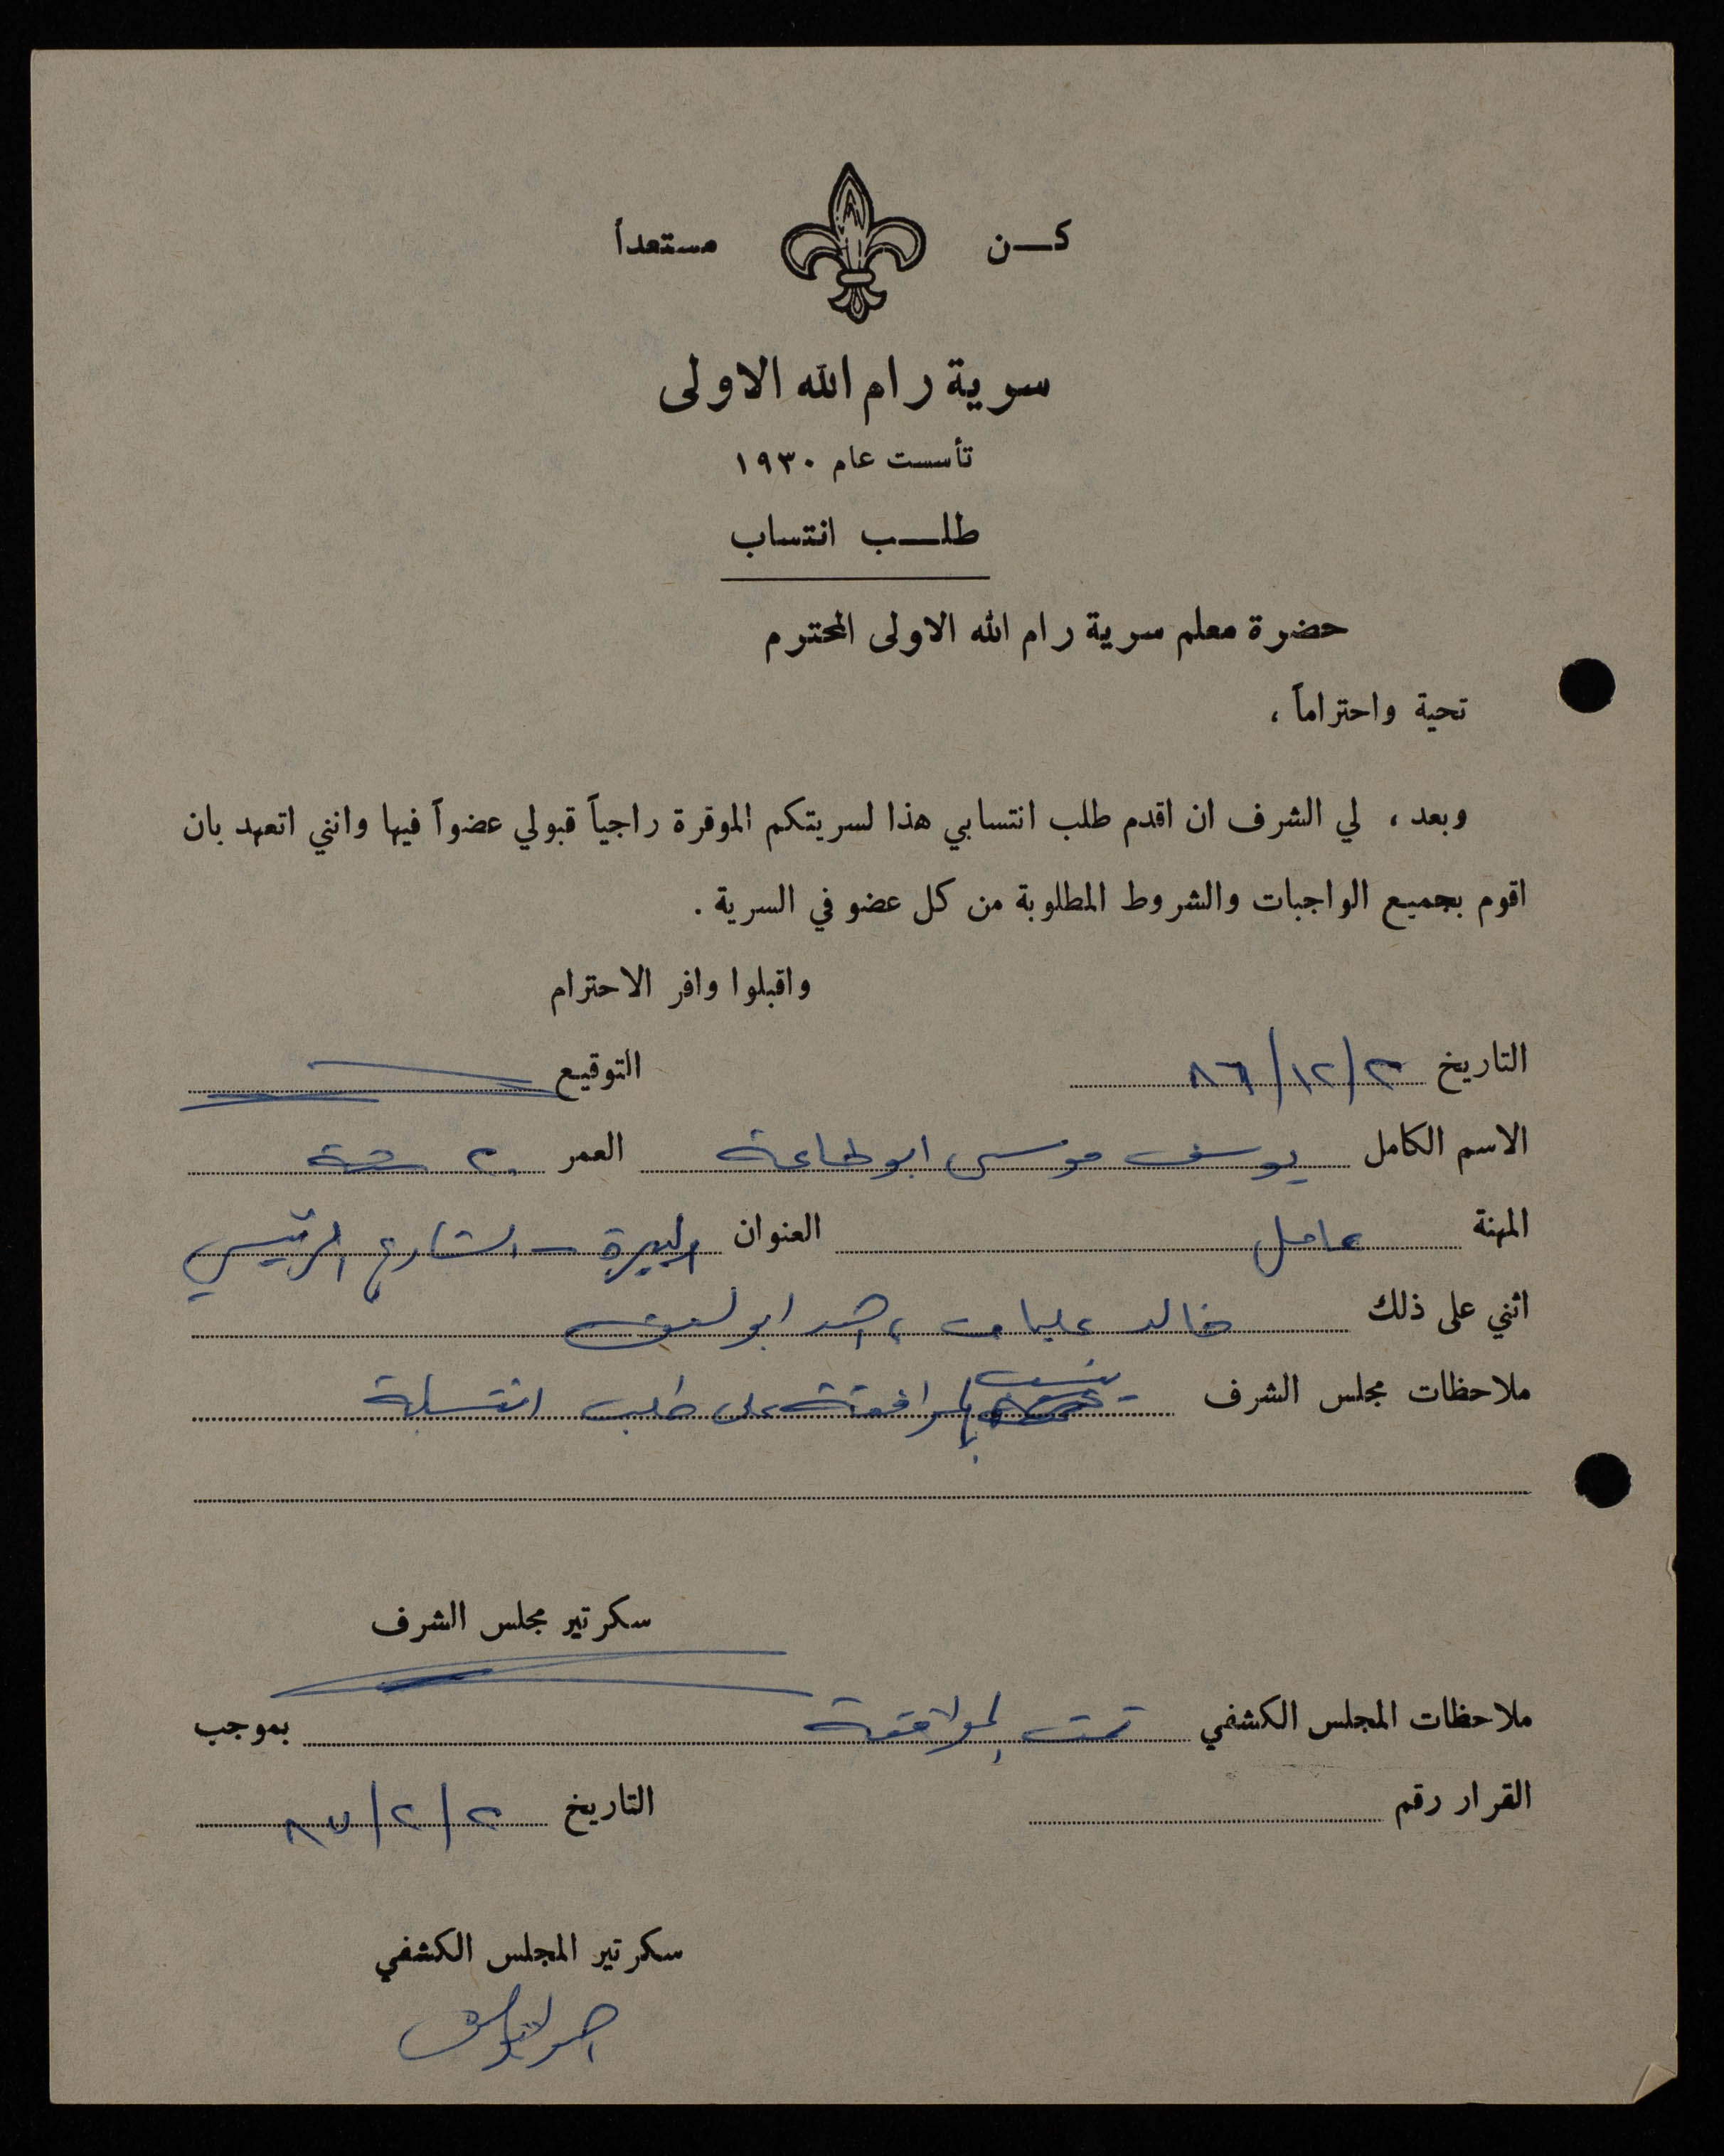 كـن مستعداً
سرية رام الله الاولى
تأسست عام ١٩٣٠
طلـب انتساب
حضرة معلم سرية رام الله الاولى المحترم
تحية واحتراماً ،
وبعد ، لي الشرف ان اقدم طلب انتسابي هذا لسريتكم الموقرة راجياً قبولي عضواً فيها وانني اتعهد بان
اقوم بجميع الواجبات والشروط المطلوبة من كل عضو في السرية .
واقبلوا وافر الاحترام
التاريخ ٨٦/١٢/٢ التوقيع
الاسم الكامل يوسف موسى ابو طاعة العمر ٢٠ سنة
المهنة عامل العنوان البيرة - الشارع الرئيسي
اثني على ذلك خالد عليان ،
ملاحظات مجلس الشرف ينسب بالموافقة على طلب انتسابه
سكرتير مجلس الشرف
ملاحظات المجلس الكشفي تمت الموافقة بموجب
القرار رقم التاريخ ٨٧/٢/٢
سكرتير المجلس الكشفي